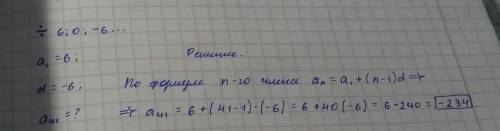 ÷ 6; 0; -6 ...
a₁ = 6;
Решение.
d = -6;
По формуле n-го члена aₙ = a₁ + (n-1)d ⇒
a₄₁ = ?
⇒ a₄₁ = 6 + (41-1)·(-6) = 6 + 40(-6) = 6 - 240 = -234.